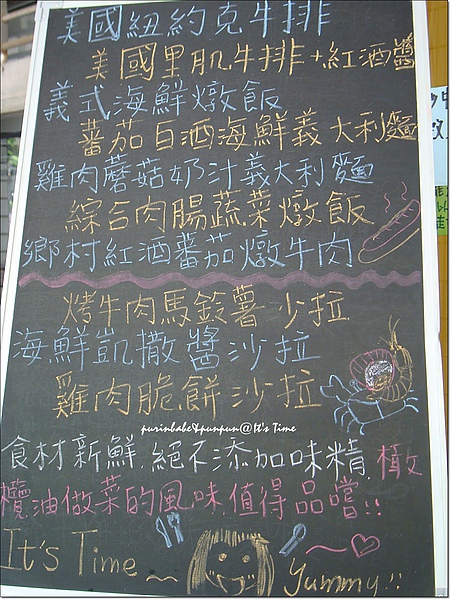 美國紐約克牛排
美國里肌牛排+紅酒醬
義式海鮮燉飯
蕃茄白酒海鮮義大利麵
雞肉蘑菇奶汁義大利麵
綜合肉腸蔬菜燉飯
鄉村紅酒蕃茄燉牛肉
烤牛肉馬鈴薯沙拉
海鮮凱撒醬沙拉
雞肉脆餅沙拉
purinbabe&punpun@It's Time
食材新鮮.絕不添加味精.橄
欖油做菜的風味.值得品嚐!!
It's Time~
Yummy!!